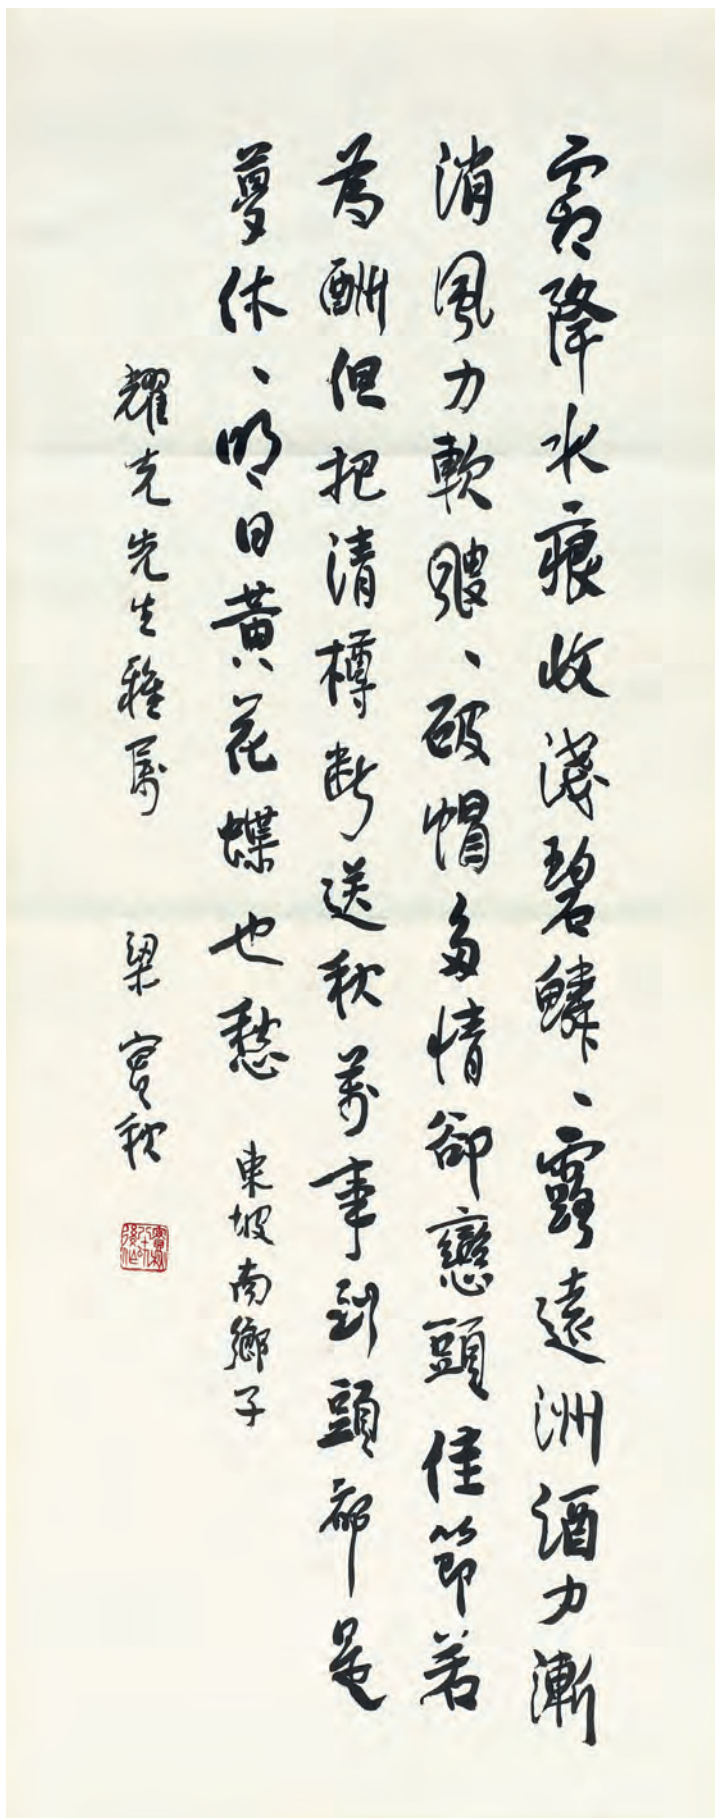 霜降水痕收淺碧鱗、露遠洲酒力漸
消風力軟颼、破帽多情卻戀頭佳節若
為酬但把清樽斷送秋萬事到頭都是
夢休、明日黃花蝶也愁 東坡南鄉子
耀克先生雅属 梁實秋